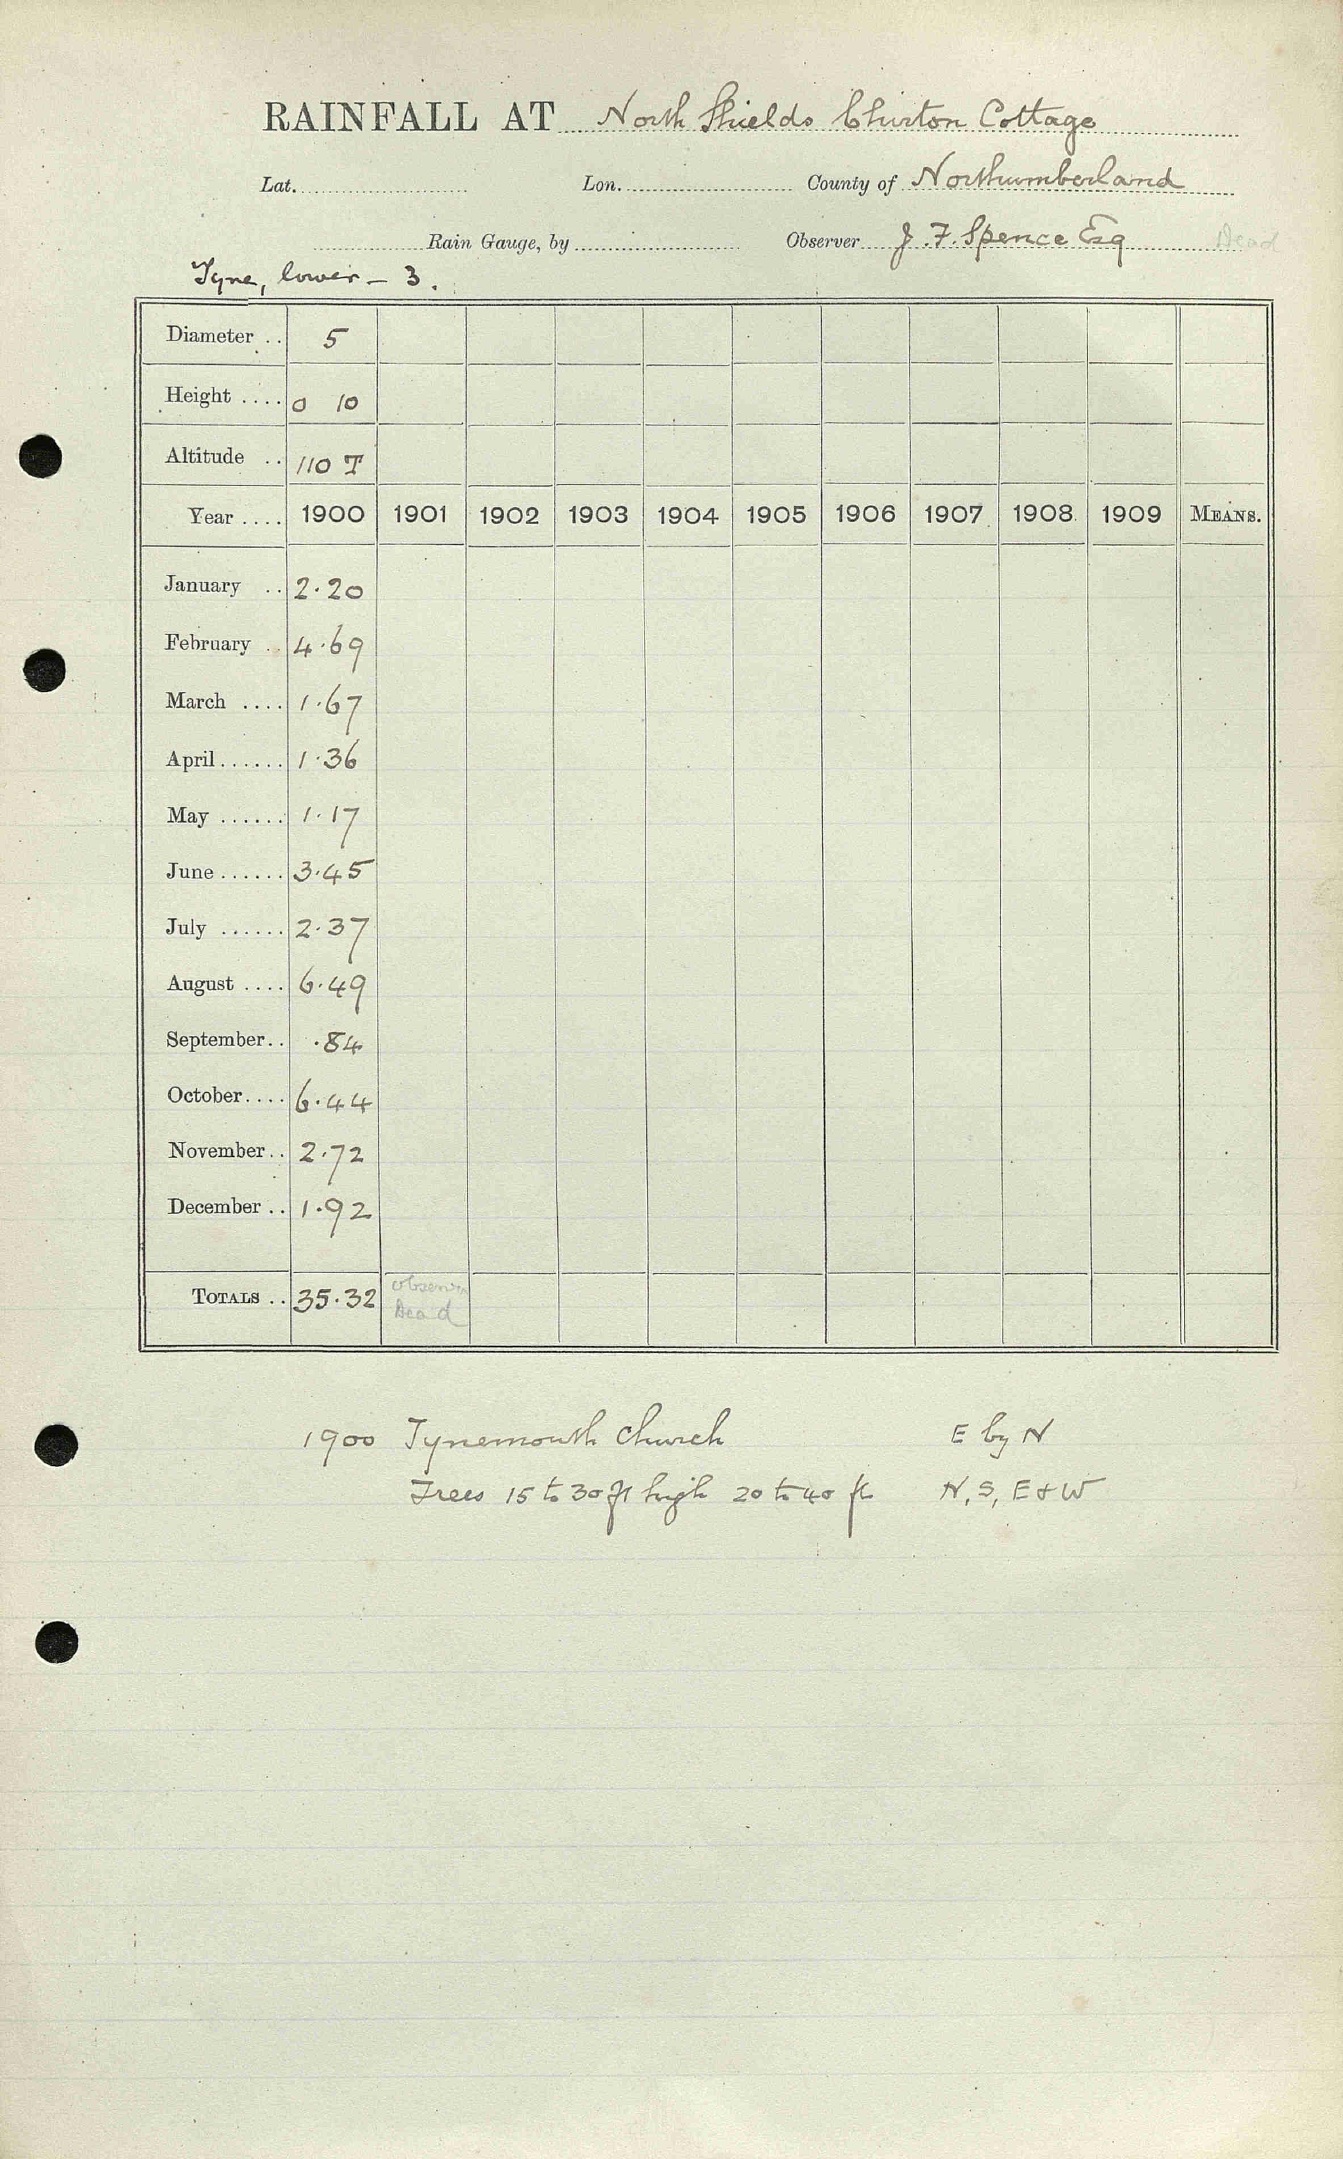 RAINFALL AT North Shields Chirton Cottage
Lat. Lon. County of Northumberland
Rain Gauge, by Observer J. F. Spence Esq Dead
Tyne, lower - 3.
Diameter .. 5
Height .... 0 10
Altitude .. 110 T
Year .... 1900 1901 1902 1903 1904 1905 1906 1907 1908 1909 MEANS.
January .. 2.20
February .. 4.69
March .... 1.67
April ...... 1.36
May ...... 1.17
June ...... 3.45
July ...... 2.37
August .... 6.49
September .. .84
October .... 6.44
November .. 2.72
December .. 1.92
TOTALS .. 35.32 Observer
Dead
1900 Tynemouth Church E by N
Trees 15 to 30 ft high 20 to 40 ft N, S, E & W